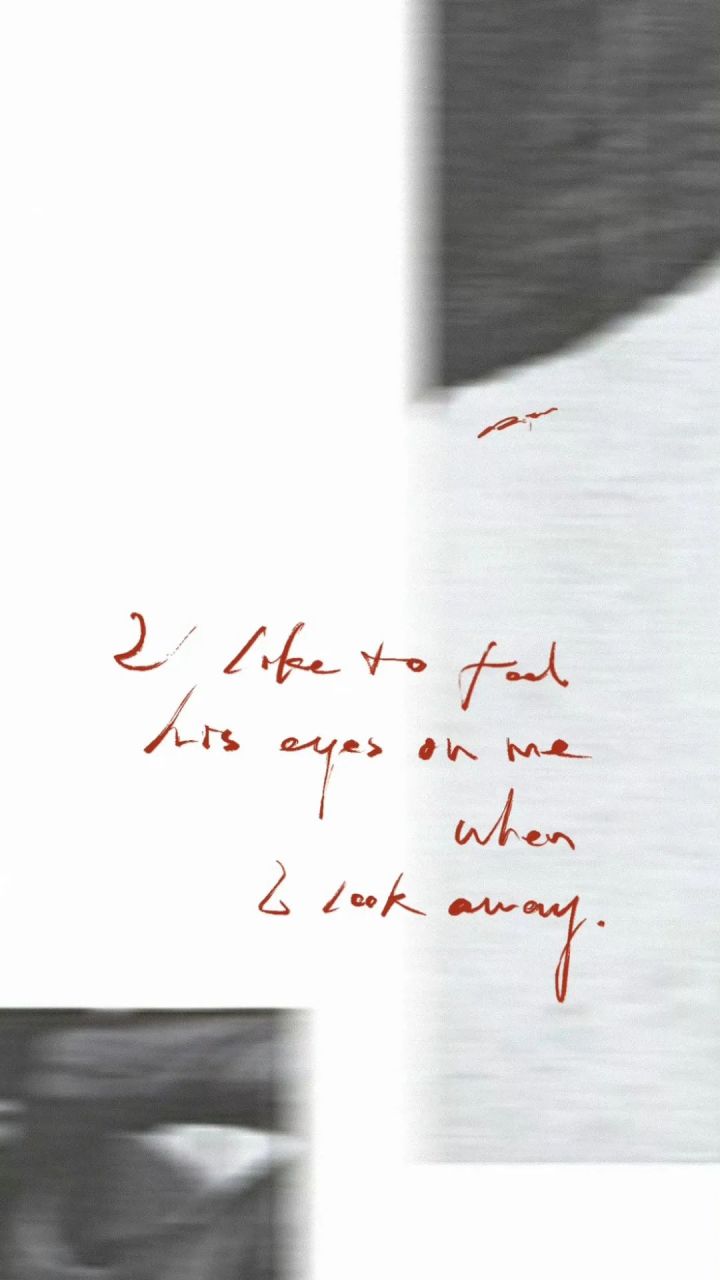 I like to feel
his eyes on me
when
I look away.